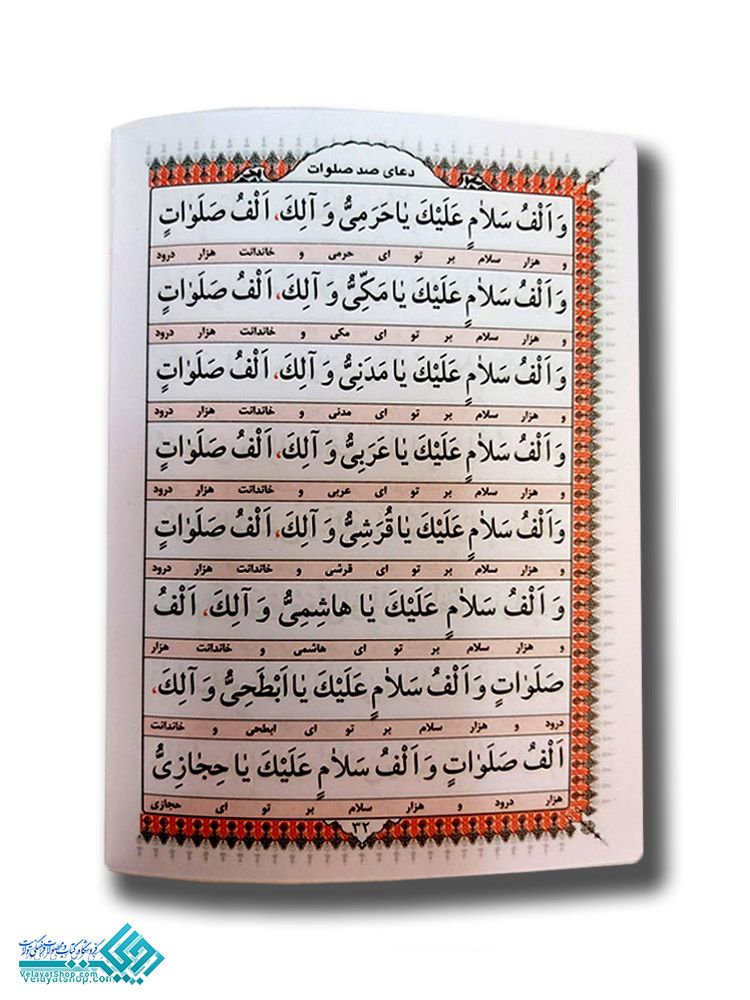 دعای صد صلوات
وَ اَلْفُ سَلاٰمٍ عَلَیْكَ یٰا حَرَمِیُّ وَ آلِكَ، اَلْفُ صَلَوٰاتٍ
و هزار سلام بر تو ای حرمی و خاندانت هزار درود
وَ اَلْفُ سَلاٰمٍ عَلَیْكَ یٰا مَكِّیُّ وَ آلِكَ، اَلْفُ صَلَوٰاتٍ
و هزار سلام بر تو ای مکی و خاندانت هزار درود
وَ اَلْفُ سَلاٰمٍ عَلَیْكَ یٰا مَدَنِیُّ وَ آلِكَ، اَلْفُ صَلَوٰاتٍ
و هزار سلام بر تو ای مدنی و خاندانت هزار درود
وَ اَلْفُ سَلاٰمٍ عَلَیْكَ یٰا عَرَبِیُّ وَ آلِكَ، اَلْفُ صَلَوٰاتٍ
و هزار سلام بر تو ای عربی و خاندانت هزار درود
وَ اَلْفُ سَلاٰمٍ عَلَیْكَ یٰا قُرَشِیُّ وَ آلِكَ، اَلْفُ صَلَوٰاتٍ
و هزار سلام بر تو ای قرشی و خاندانت هزار درود
وَ اَلْفُ سَلاٰمٍ عَلَیْكَ یٰا هاشِمِیُّ وَ آلِكَ، اَلْفُ
و هزار سلام بر تو ای هاشمی و خاندانت هزار
صَلَوٰاتٍ وَ اَلْفُ سَلاٰمٍ عَلَیْكَ یٰا اَبْطَحِیُّ وَ آلِكَ،
درود و هزار سلام بر تو ای ابطحی و خاندانت
اَلْفُ صَلَوٰاتٍ وَ اَلْفُ سَلاٰمٍ عَلَیْكَ یٰا حِجٰازِیُّ
هزار درود و هزار سلام بر تو ای حجازی
۳۲
فروشگاه کتاب و محصولات فرهنگی ولایت
VelayatShop.com